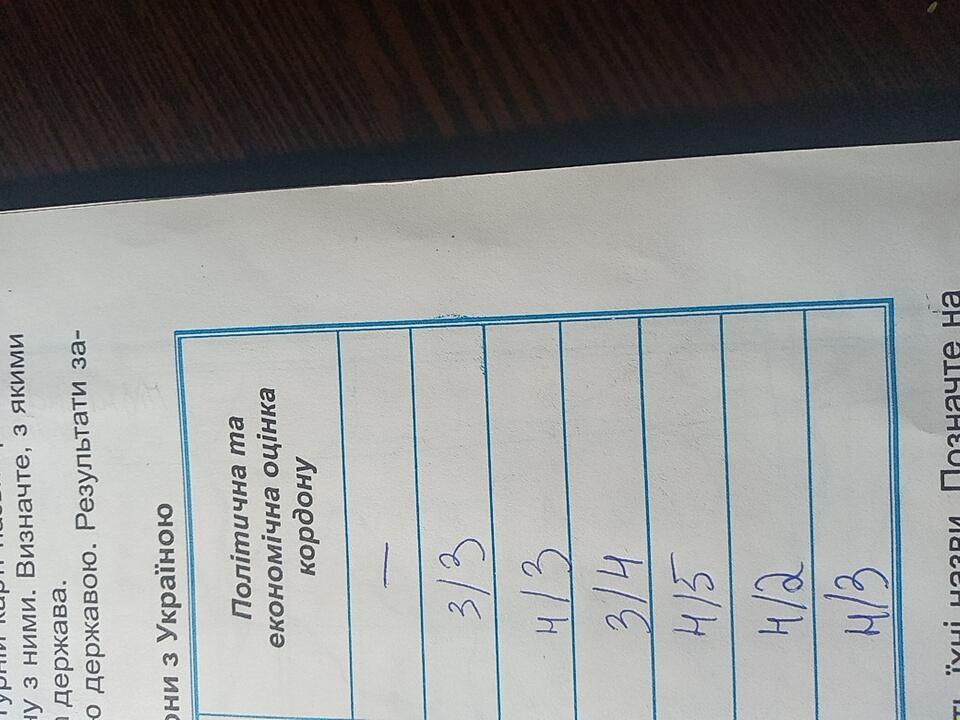 ну з ними. Визначте, з якими
держава.
державою. Результати за-
з Україною
Політична та
економічна оцінка
кордону
—
3/3
4/3
3/4
4/5
4/2
4/3
їхні назви. Позначте на